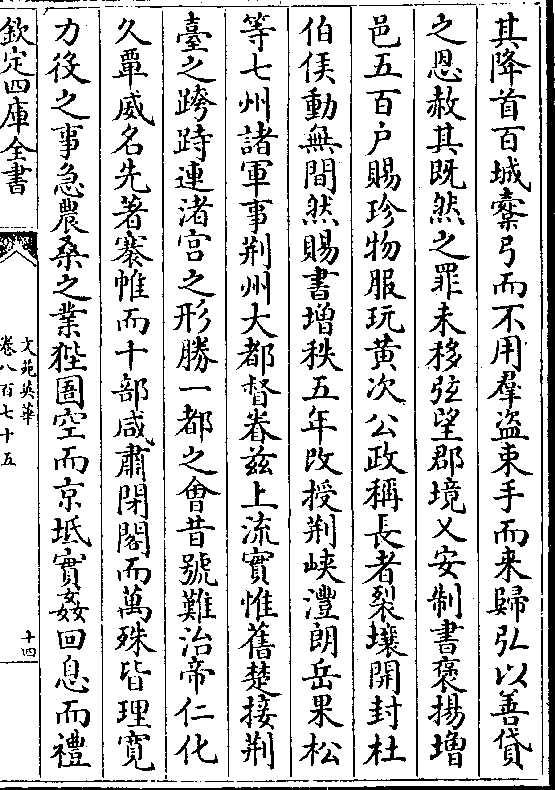 其降首百城櫜弓而不用羣盗束手而来歸弘以善貸
之恩赦其既然之罪未移弦望郡境乂安制書褒揚增
邑五百户賜珍物服玩黄次公政稱長者裂壤開封杜
伯侯動無間然賜書增秩五年改授荆峽澧朗岳果松
等七州諸軍事荆州大都督眷兹上流實惟舊楚接荆
臺之跨跱連渚宫之形勝一都之會昔號難治帝仁化
久覃威名先著褰帷而十部咸肅閉閣而萬殊皆理寛
力役之事急農桑之業狴圄空而京坻實姦回息而禮
欽定四庫全書
文苑英華
卷八百七十五
十四